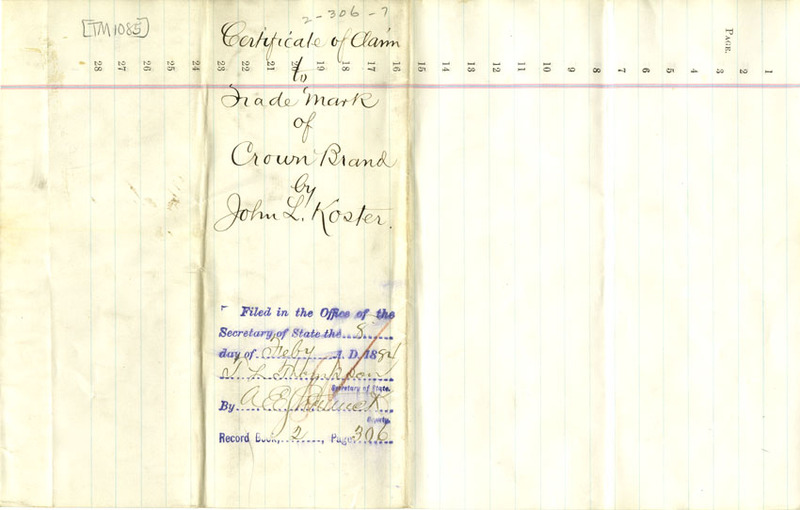 2-306-7
[TM1085]
Certificate of Claim
to
Trade Mark
of
Crown Brand
by
John L. Koster.
PAGE.
28 27 26 25 24 23 22 21 20 19 18 17 16 15 14 13 12 11 10 9 8 7 6 5 4 3 2 1
Filed in the Office of the
Secretary of State the 8
day of Feby A.D. 1884
T L Thompson
Secretary of State.
By A E
Deputy.
Record Book, 2, Page 306